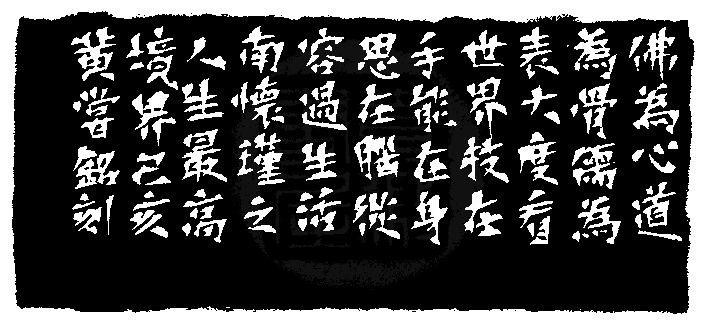 佛為心道
為骨儒為
表大度看
世界技在
手能在身
思在腦從
容過生活
南懷瑾之
人生最高
境界己亥
黃嘗銘刻